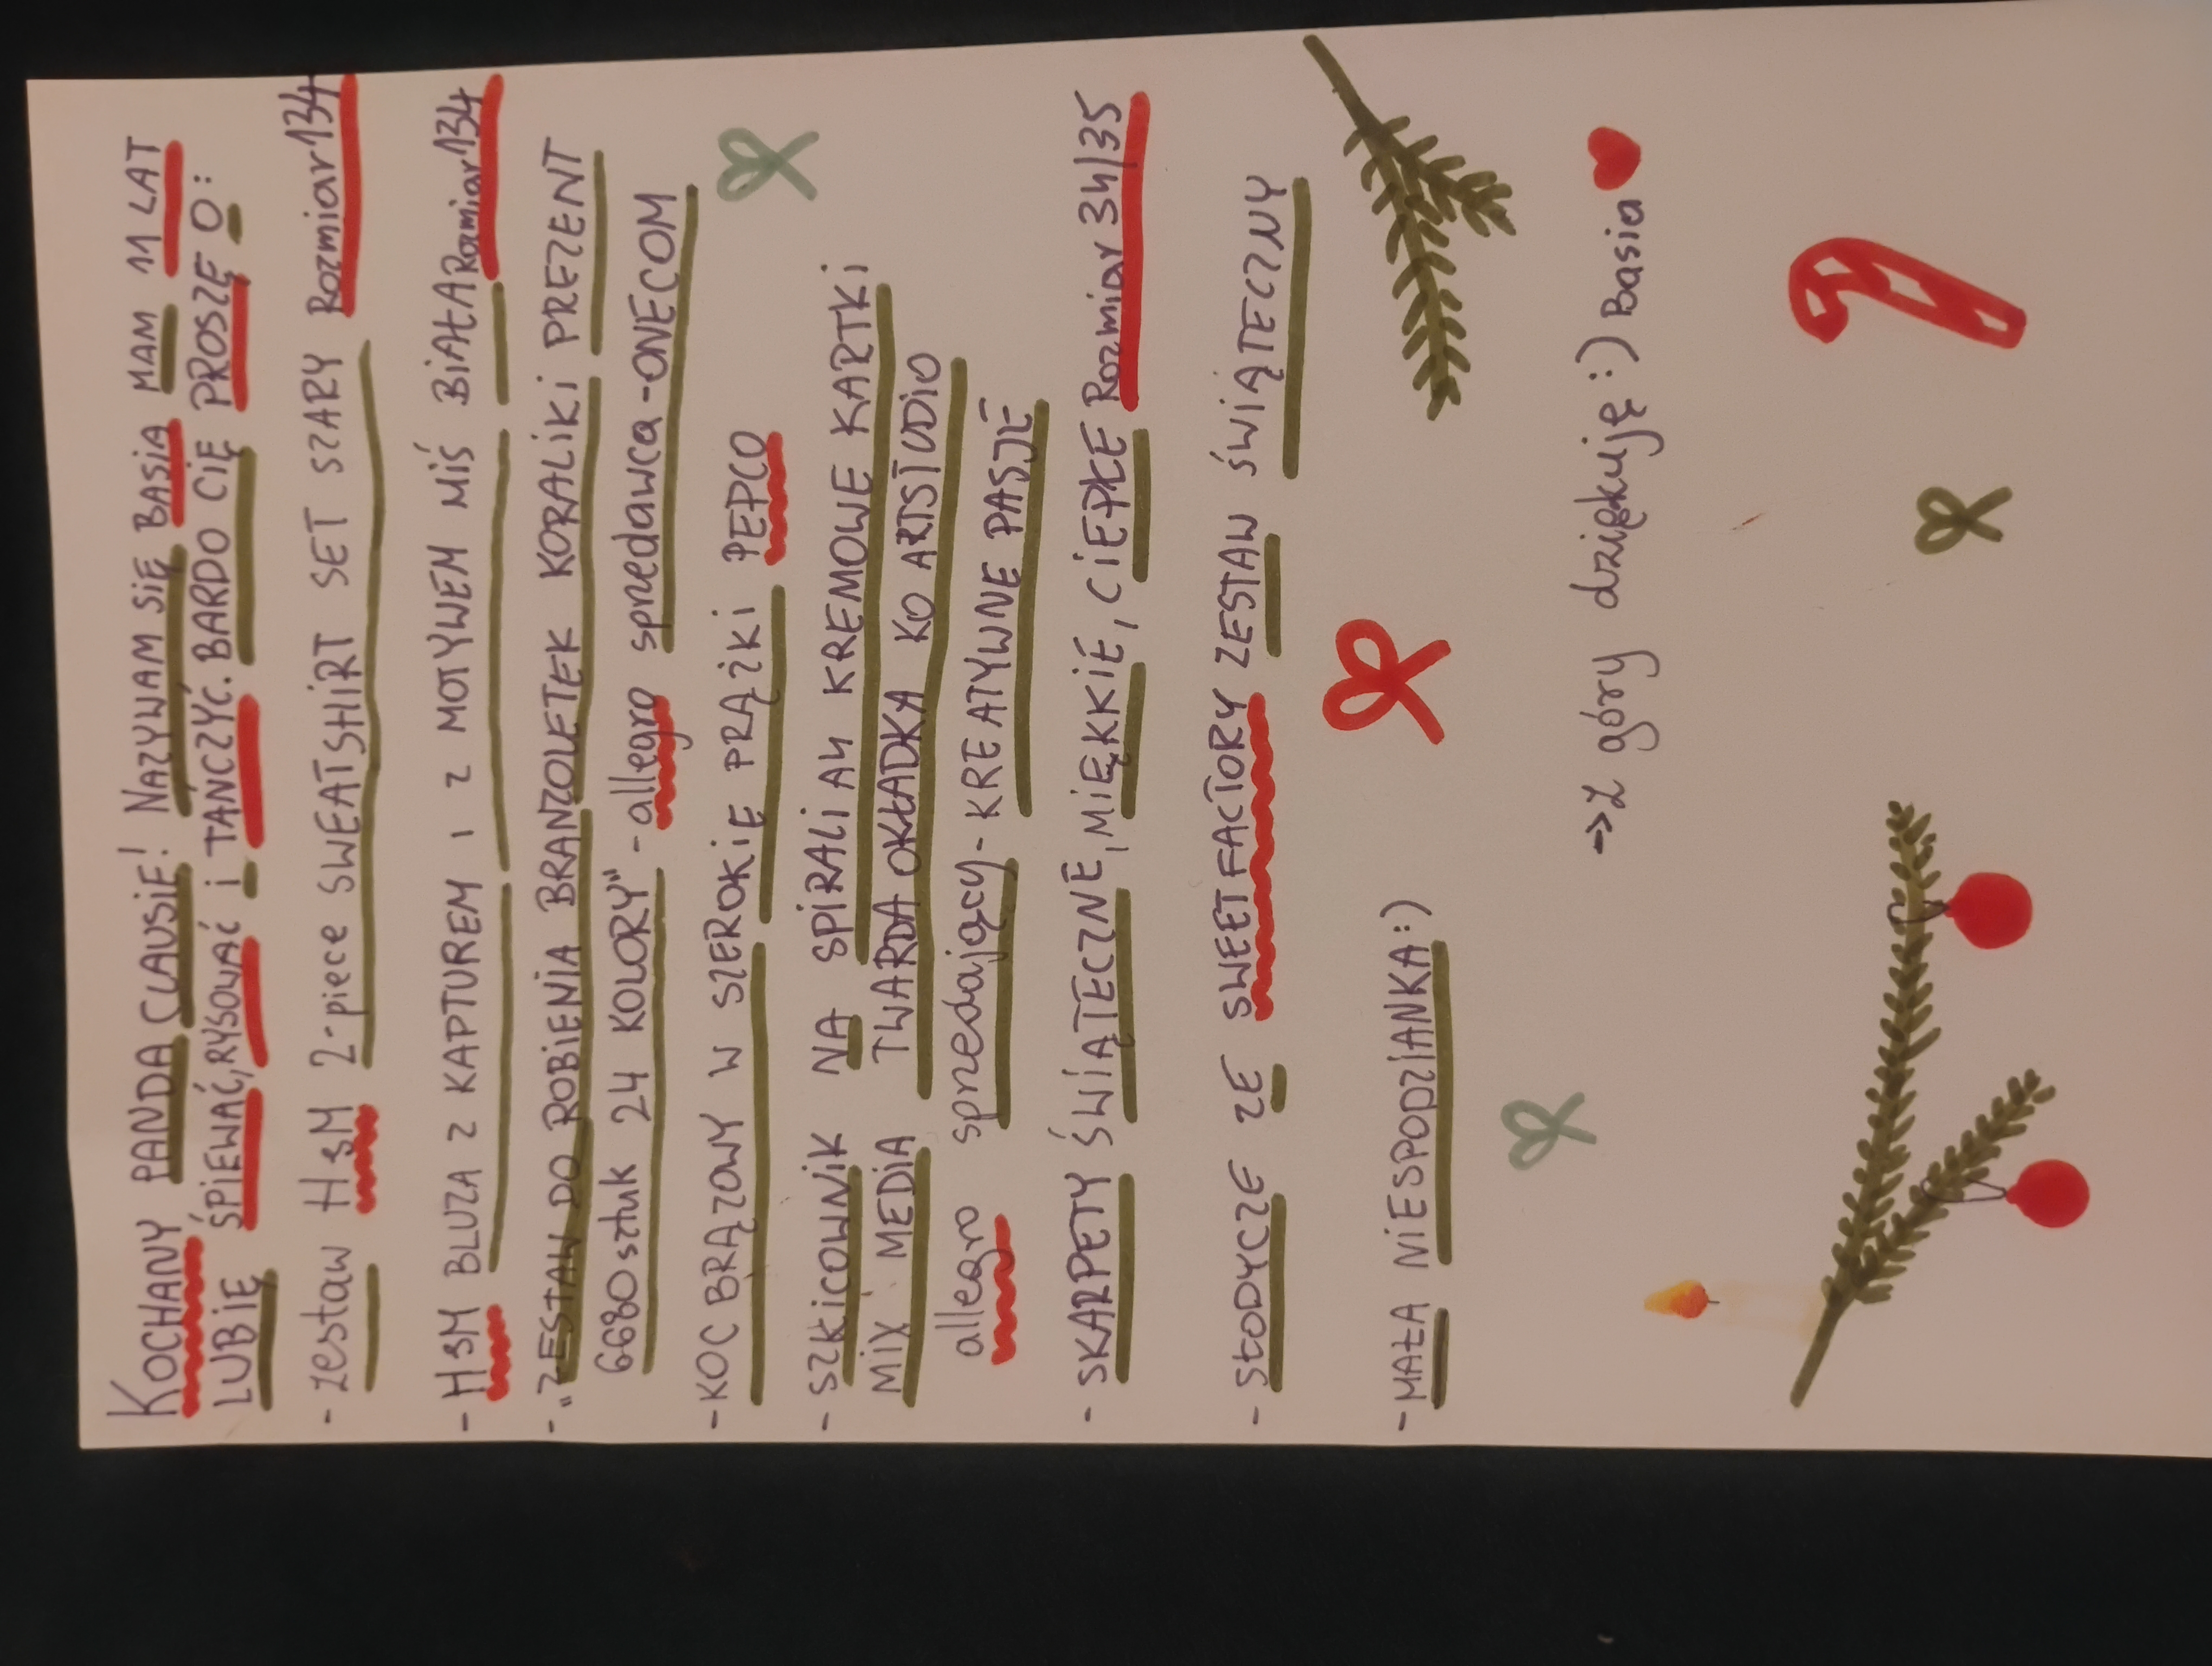 KOCHANY PANDA CLAUSIE! NAZYWAM SIĘ BASIA MAM 11 LAT
LUBIĘ ŚPIEWAĆ, RYSOWAĆ i TANCZYĆ. BARDO CIĘ PROSZĘ O:
- zestaw H&M 2-piece SWEATSHIRT SET SZARY Rozmiar 134
- H&M BLUZA Z KAPTUREM I Z MOTYWEM MIŚ BIAŁA Rozmiar 134
- "ZESTAW DO ROBIENIA BRANZOLETEK KORALIKI PREZENT
6680 sztuk 24 KOLORY" - allegro sprzedawca - ONECOM
- KOC BRĄZOWY W SZEROKIE PRĄŻKI PEPCO
- SZKICOWNIK NA SPIRALI A4 KREMOWE KARTKI
MIX MEDIA TWARDA OKŁADKA KO ARTSTUDIO
allegro sprzedający - KREATYWNE PASJE
- SKARPETY ŚWIĄTECZNE, MIĘKKIE, CIEPŁE Rozmiar 34/35
- SŁODYCZE ZE SWEET FACTORY ZESTAW ŚWIĄTECZNY
- MAŁA NIESPODZIANKA:)
-> Z góry dziękuję:) Basia